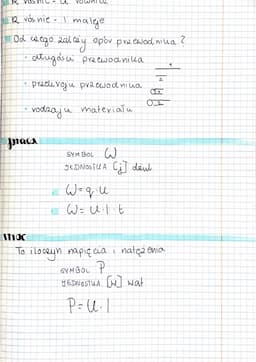 R rośnie - U również
R rośnie - I maleje
Od czego zależy opór przewodnika?
• długości przewodnika
• przekroju przewodnika
• rodzaju materiału
praca
SYMBOL W
JEDNOSTKA [J] dżul
W = q · U
W = U · I · t
moc
To iloczyn napięcia i natężenia
SYMBOL P
JEDNOSTKA [W] wat
P = U · I